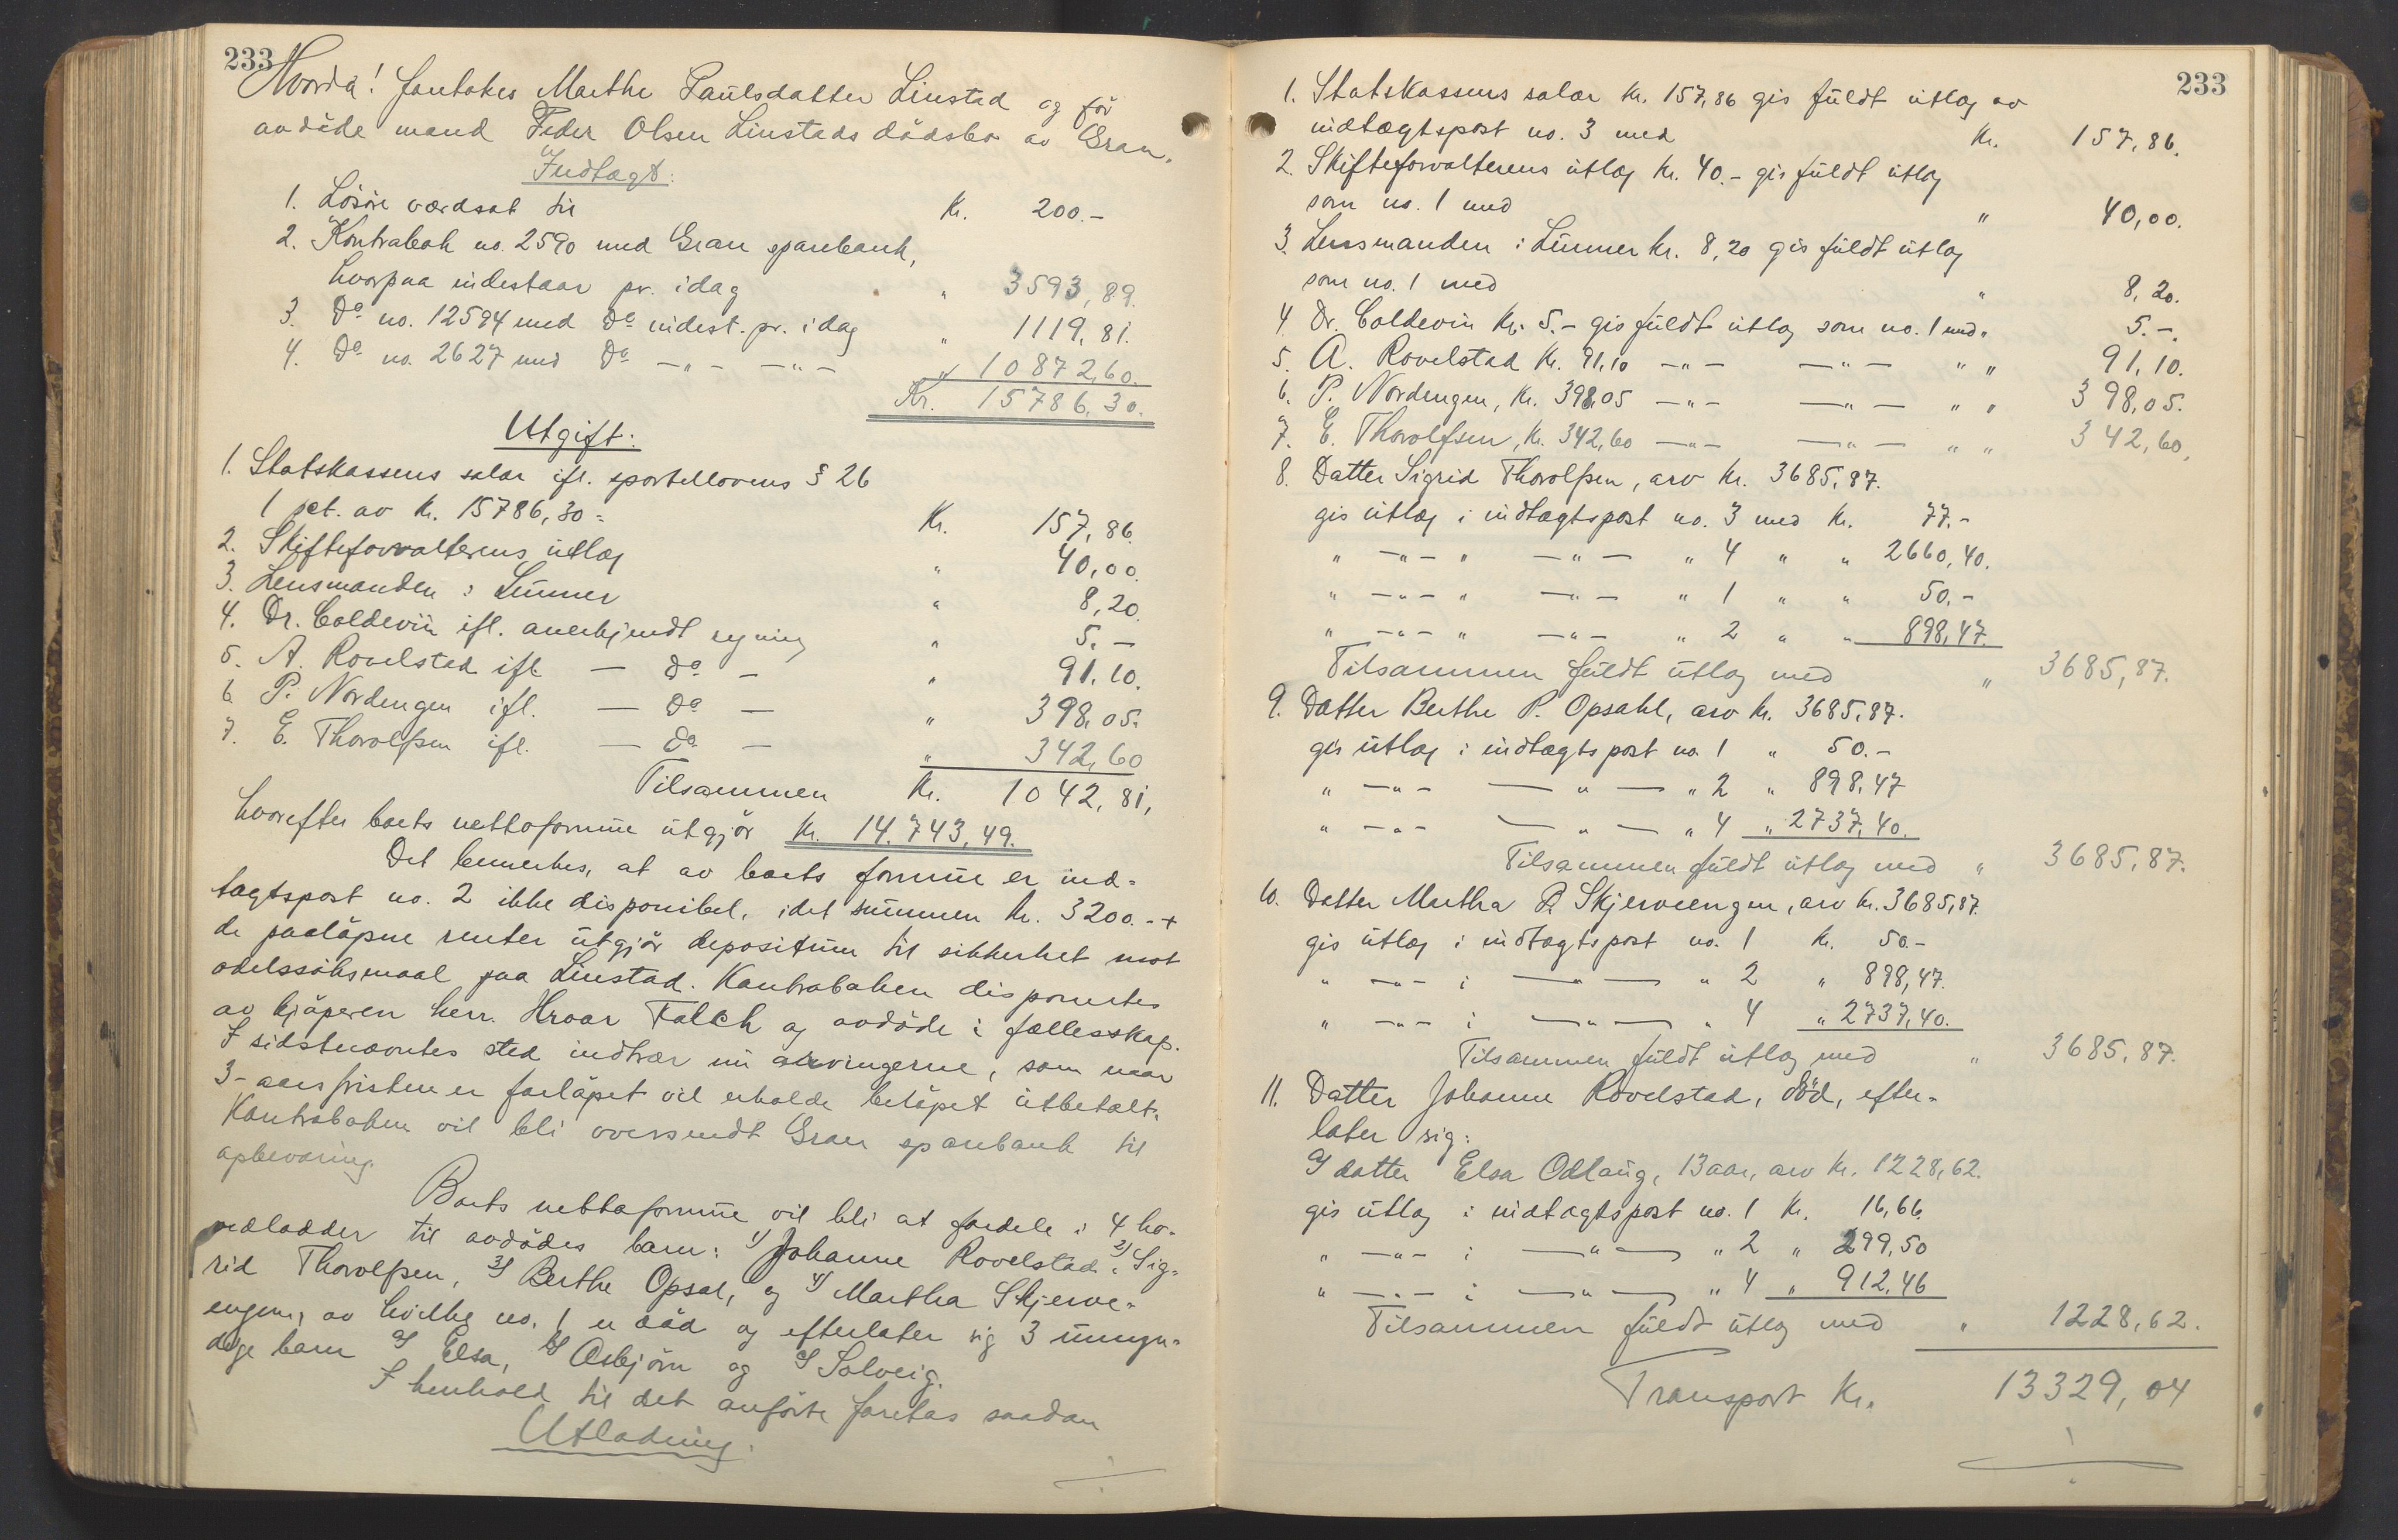 233
Hvorda! foretokes Marthe Paulsdatter Linstad og før
avdøde mand Peder Olsen Linstads dødsbo av Gran.
Indtægt:
1. Løsøre værdsat til Kr. 200.-
2. Kontrabok no. 2590 med Gran sparebank,
hvorpaa indestaar pr. idag " 3593,89.
3. Do no. 12594 med Do indest. pr. idag " 1119,81.
4. Do no. 2627 med Do -"- -"- " 10872,60.
Kr. 15786,30.
Utgift:
1. Statskassens salær ifl. sportellovens § 26
1 pct. av Kr. 15786,30 = Kr. 157,86.
2. Skifteforvalterens utlæg " 40,00.
3. Lensmanden i Lunner " 8,20.
4. Dr. Coldevin ifl. anerkjendt regning " 5.-
5. A. Rovelstad ifl. - Do - " 91,10.
6. P. Nordengen ifl. - Do - " 398,05.
7. E. Thorolfsen ifl. - Do - " 342,60
Tilsammen Kr. 1042,81,
hvorefter boets nettoformue utgjør Kr. 14.743,49.
Det bemerkes, at av boets formue er ind-
tægtspost no. 2 ikke disponibel, idet summen Kr. 3200.- +
de paaløpne renter utgjør depositum til sikkerhet mot
odelssøksmaal paa Linstad. Kontraboken disponertes
av kjøperen herr. Hroar Falch og avdøde i fællesskap.
I sidstnævntes sted indtrær nu arvingerne, som naar
3-aarsfristen er forløpet vil erholde beløpet utbetalt.
Kontraboken vil bli oversendt Gran sparebank til
opbevaring.
Boets nettoformue vil bli at fordele i 4 ho-
vedlodder til avdødes barn: 1) Johanne Rovelstad, 2) Sig-
rid Thorolfsen, 3) Berthe Opsal, og 4) Martha Skjerve-
engen, av hvilke no. 1 er død og efterlater sig 3 umyn-
dige barn a) Elsa, b) Asbjørn og c) Solveig.
I henhold til det anførte foretas saadan
Utlodning.
233
1. Statskassens salær kr. 157,86 gis fuldt utlæg av
indtægtspost no. 3 med Kr. 157,86.
2. Skifteforvalterens utlæg Kr. 40.- gis fuldt utlæg
som no. 1 med " 40,00.
3. Lensmanden i Lunner kr. 8,20 gis fuldt utlæg
som no. 1 med " 8,20.
4. Dr. Coldevin kr. 5.- gis fuldt utlæg som no. 1 med " 5.-
5. A. Rovelstad Kr. 91,10 -"- -"- " " 91,10.
6. P. Nordengen, Kr. 398,05 -"- -"- " " 398,05.
7. E. Thorolfsen, Kr. 342,60 -"- -"- " " 342,60,
8. Datter Sigrid Thorolfsen, arv Kr. 3685,87.
gis utlæg i indtægtspost no. 3 med Kr. 77.-
" -"- " -"- " 4 " " 2660,40.
" -"- " -"- " 1 " " 50,-
" -"- " -"- " 2 " " 898,47.
Tilsammen fuldt utlæg med " 3685,87.
9. Datter Berthe P. Opsahl, arv Kr. 3685,87.
gis utlæg i indtægtspost no. 1 " 50.-
" -"- -"- " 2 " 898,47
" -"- -"- " 4 " 2737,40.
Tilsammen fuldt utlæg med " 3685,87.
10. Datter Martha P. Skjerveengen, arv Kr. 3685,87.
gis utlæg i indtægtspost no. 1 Kr. 50.-
" -"- i -"- " 2 " 898,47.
" -"- i -"- " 4 " 2737,40.
Tilsammen fuldt utlæg med " 3685,87.
11. Datter Johanne Rovelstad, død, efter-
later sig:
a) datter Elsa Odlaug, 13 aar, arv Kr. 1228,62.
gis utlæg i indtægtspost no. 1 Kr. 16,66.
" -"- i -"- " 2 " 299,50
" -"- i -"- " 4 " 912,46
Tilsammen fuldt utlæg med " 1228,62.
Transport Kr. 13329,04